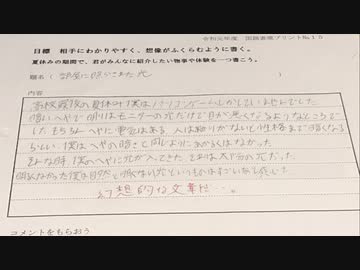 令和元年度　国語表現プリントNo.15
目標　相手にわかりやすく、想像がふくらむように書く。
夏休みの期間で、君がみんなに紹介したい物事や体験を一つ書こう。
題名（部屋に照らされた光）
内容
高校最後の夏休み僕はパソコンゲームしかしていませんでした
暗いへやで明りはモニターの光だけで目が悪くなるようなところで
した もちろんへやに電気はある 人は明りがないと性格まで暗くなる
らしい 僕はへやの暗さと同じようにあかるくはなかった
そんな時 僕のへやに光が入ってきた それは太陽の光だった
明るくなかった僕は自然と
というものはすごいなと感じた
幻想的な文章だ…。
コメントをもらおう